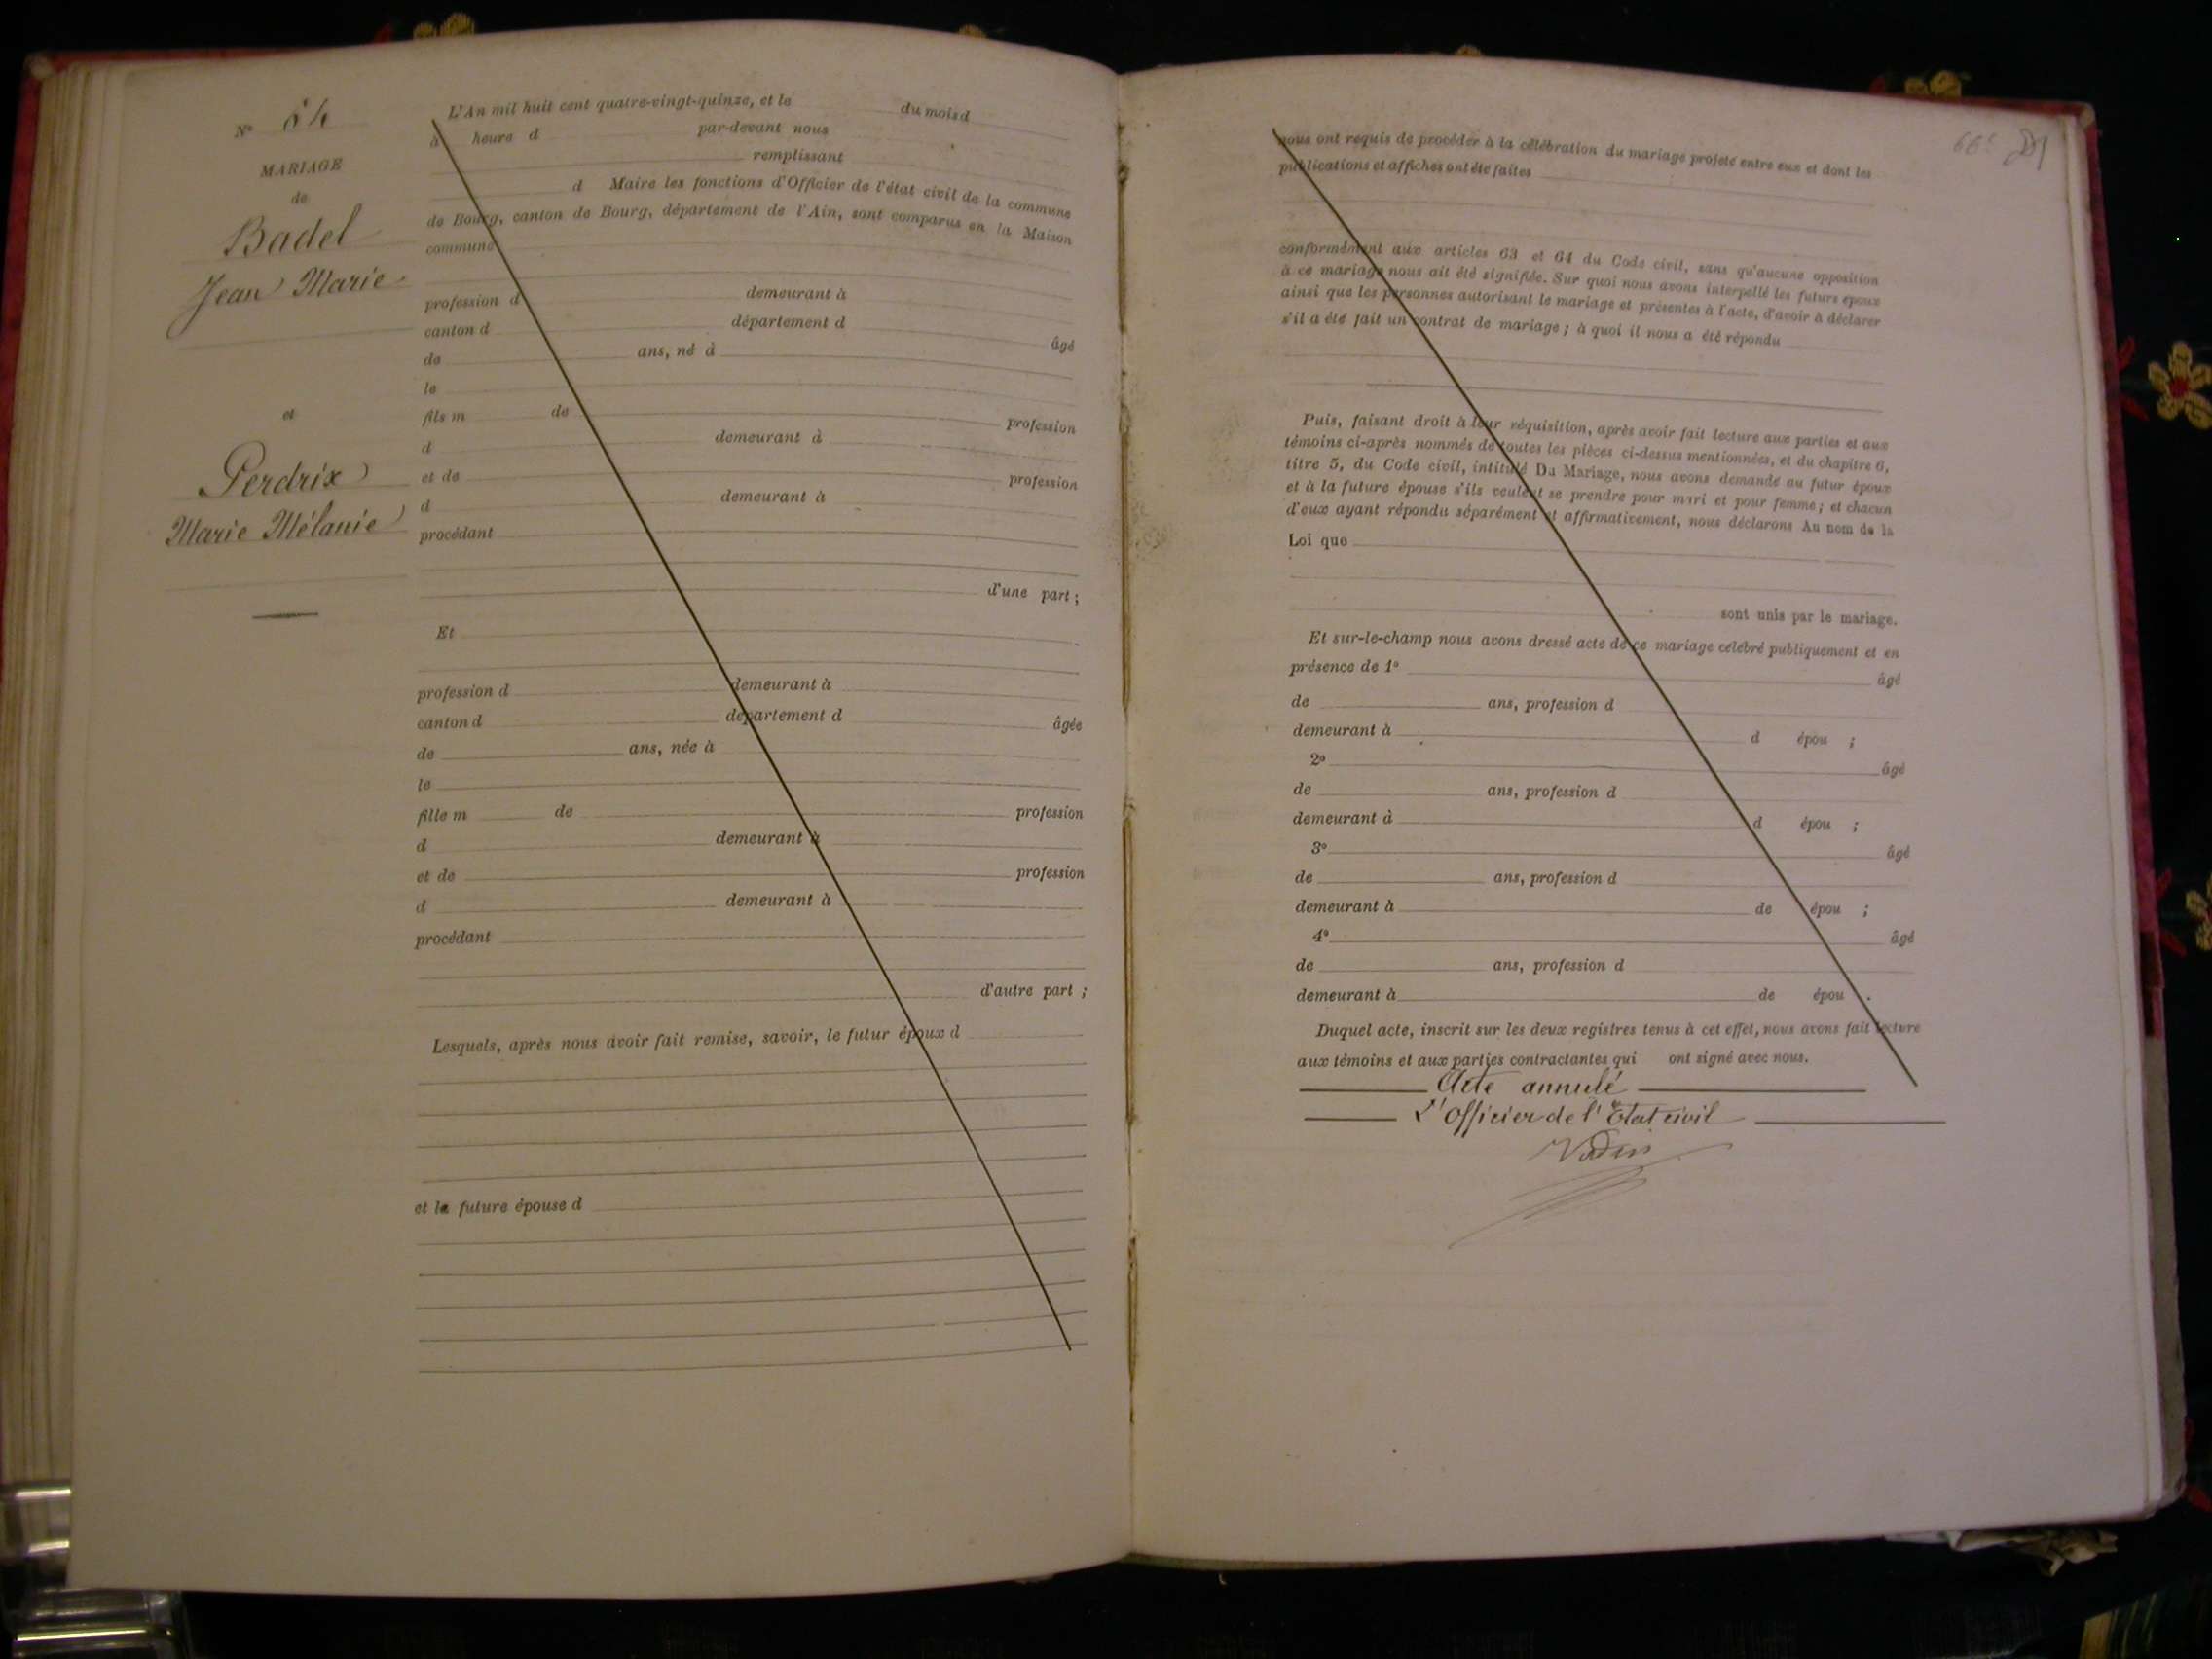 N°
MARIAGE
de
Badel
Jean Marie
et
Perdrix
Marie Mélanie
L'An mil huit cent quatre-vingt-quinze, et le du mois d
à heure d par-devant nous
remplissant
d Maire les fonctions d'Officier de l'état civil de la commune
de Bourg, canton de Bourg, département de l'Ain, sont comparus en la Maison
commune
profession d demeurant à
canton d département d âgé
de ans, né à
le
fils m de profession
d demeurant à
et de profession
d demeurant à
procédant
d'une part ;
Et
profession d demeurant à
canton d département d âgée
de ans, née à
le
fille m de profession
d demeurant à
et de profession
d demeurant à
procédant
d'autre part ;
Lesquels, après nous avoir fait remise, savoir, le futur époux d
et la future épouse d
nous ont requis de procéder à la célébration du mariage projeté entre eux et dont les
publications et affiches ont été faites
conformément aux articles 63 et 64 du Code civil, sans qu'aucune opposition
à ce mariage nous ait été signifiée. Sur quoi nous avons interpellé les futurs époux
ainsi que les personnes autorisant le mariage et présentes à l'acte, d'avoir à déclarer
s'il a été fait un contrat de mariage ; à quoi il nous a été répondu
Puis, faisant droit à leur réquisition, après avoir fait lecture aux parties et aux
témoins ci-après nommés de toutes les pièces ci-dessus mentionnées, et du chapitre 6,
titre 5, du Code civil, intitulé Du Mariage, nous avons demandé au futur époux
et à la future épouse s'ils veulent se prendre pour mari et pour femme ; et chacun
d'eux ayant répondu séparément et affirmativement, nous déclarons Au nom de la
Loi que
sont unis par le mariage.
Et sur-le-champ nous avons dressé acte de ce mariage célébré publiquement et en
présence de 1° âgé
de ans, profession d
demeurant à d épou ;
2° âgé
de ans, profession d
demeurant à d épou ;
3° âgé
de ans, profession d
demeurant à de épou ;
4° âgé
de ans, profession d
demeurant à de épou .
Duquel acte, inscrit sur les deux registres tenus à cet effet, nous avons fait lecture
aux témoins et aux parties contractantes qui ont signé avec nous.
Acte annulé
L'Officier de l'Etat civil